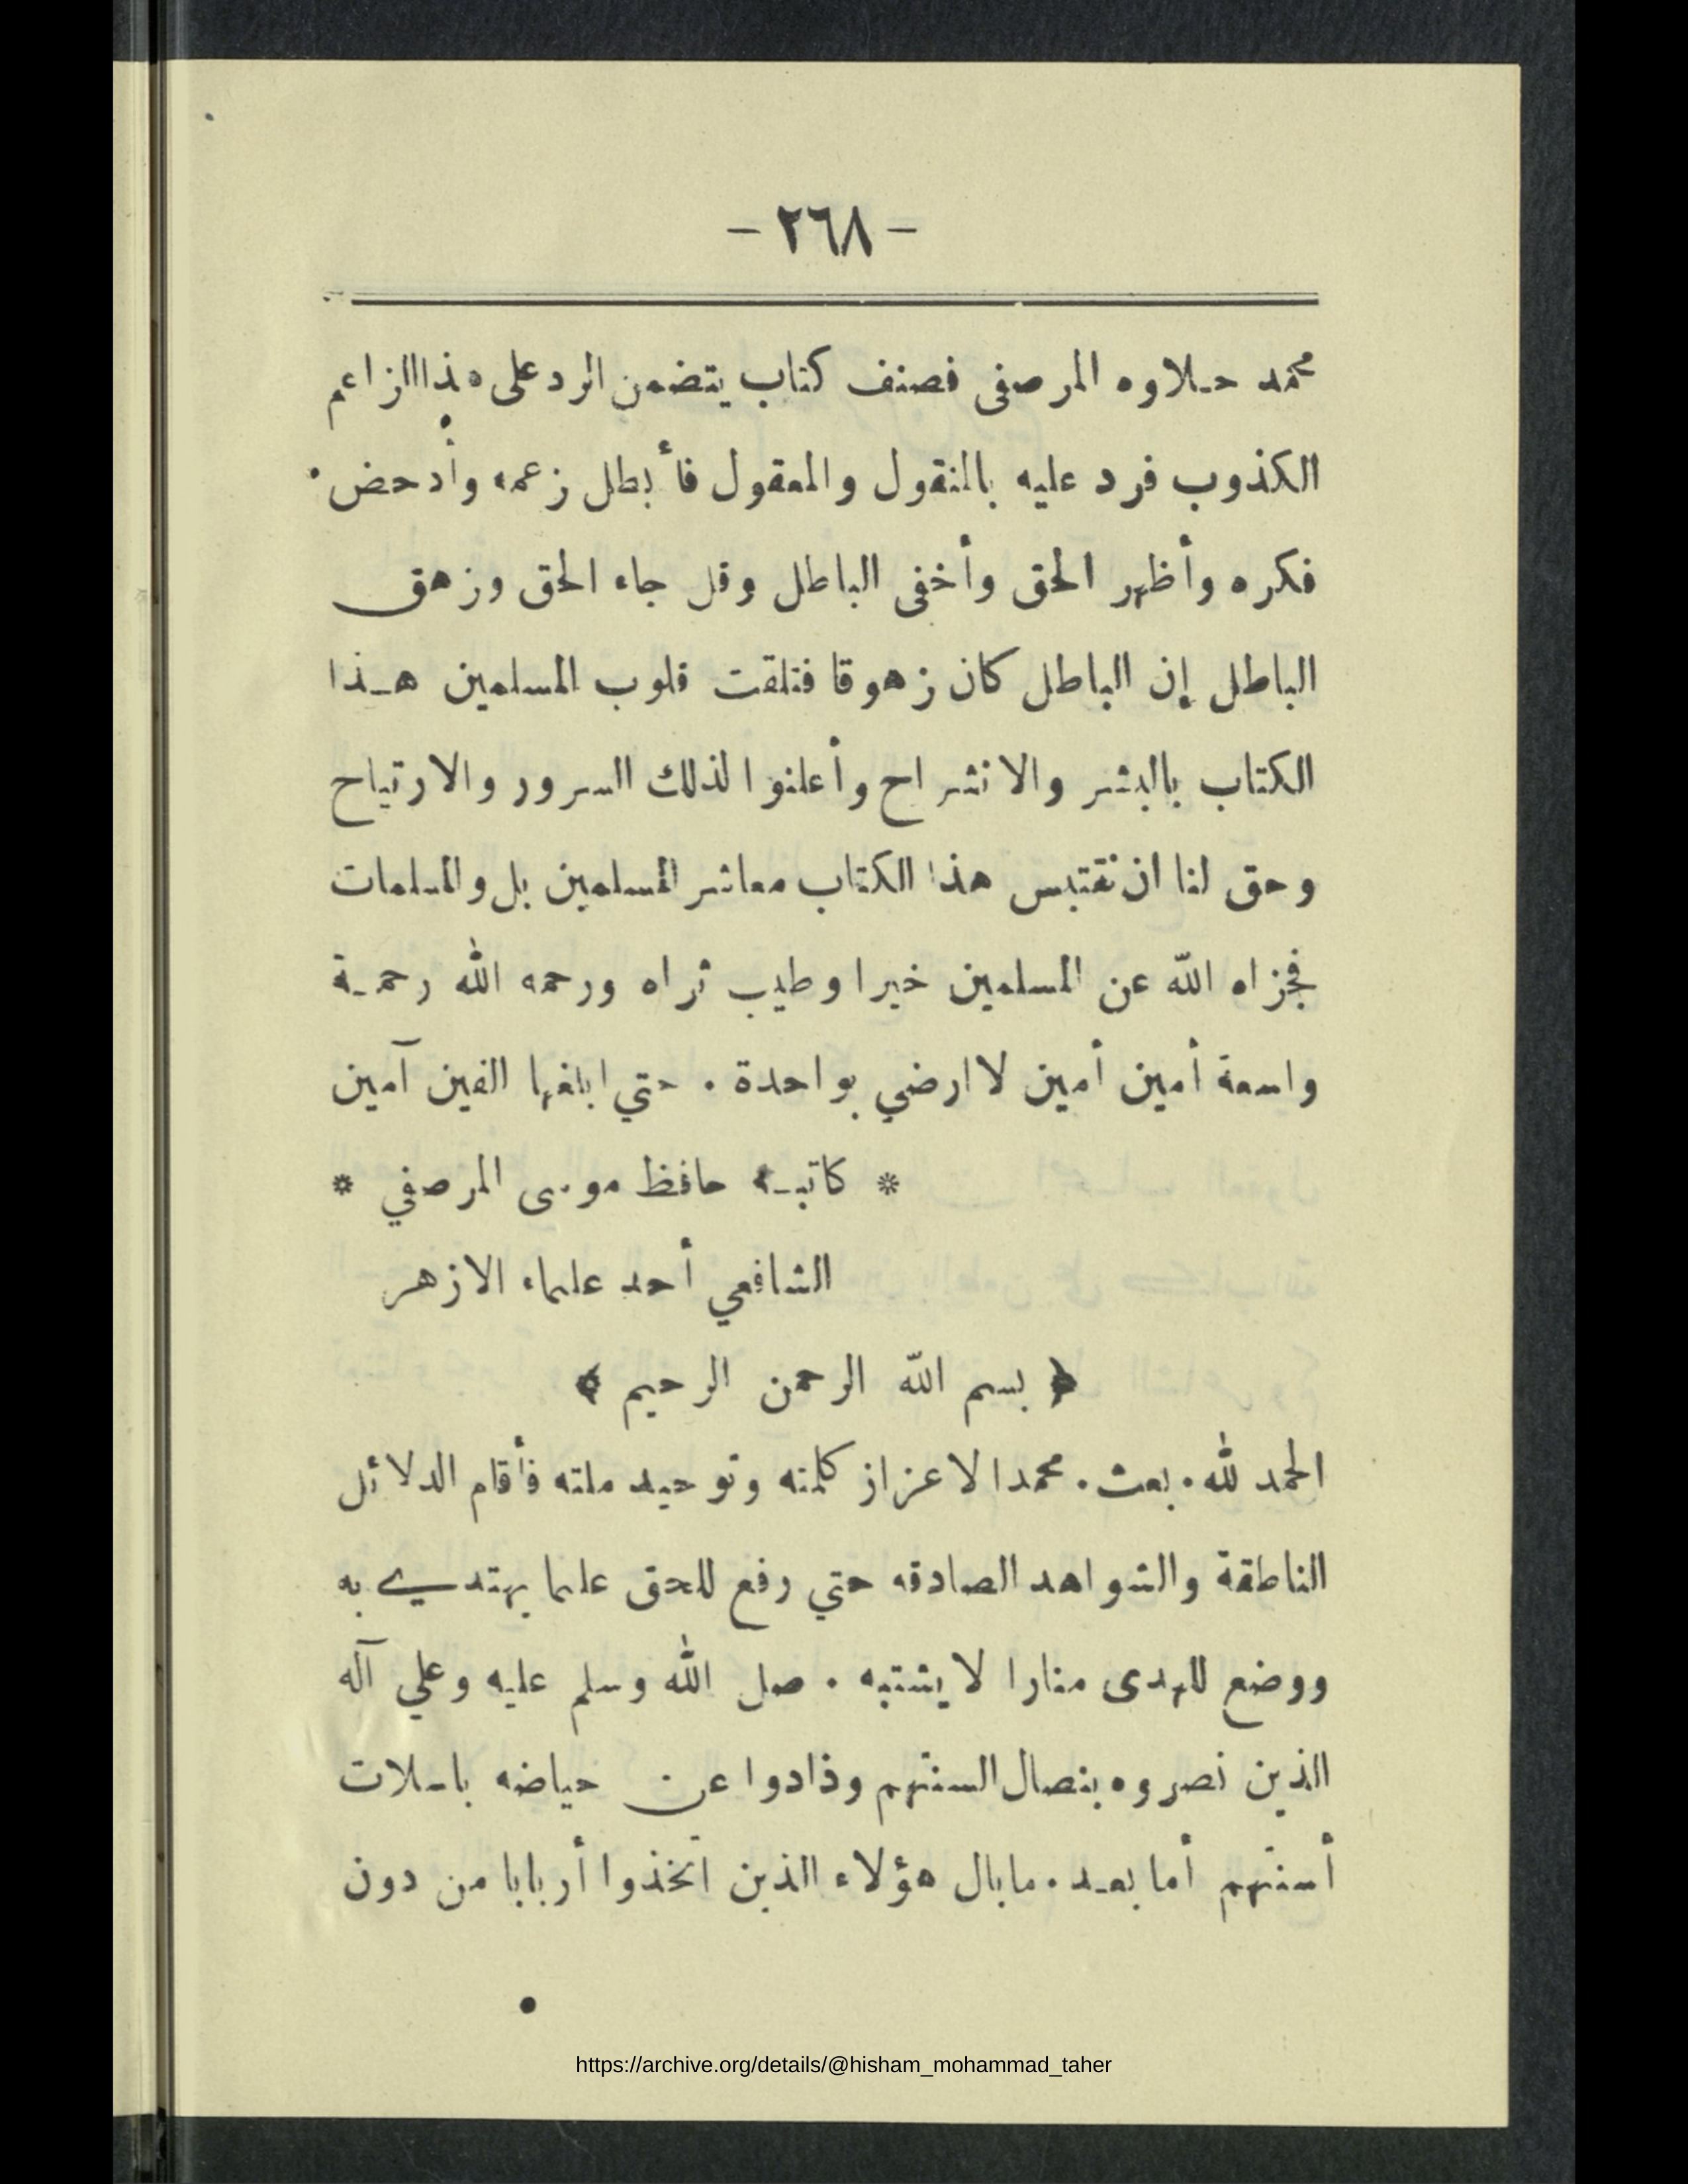 - ٢٦٨ -
محمد حـلاوه المرصفى فصنف كتاب يتضمن الرد على هذا الزاعم
الكذوب فرد عليه بالمنقول والمعقول فأبطل زعمه وأدحض
فكره وأظهر الحق وأخفى الباطل وقل جاء الحق وزهق
الباطل إن الباطل كان زهوقا فتلقت قلوب المسلمين هـذا
الكتاب بالبشر والانشراح وأعلنوا لذلك السرور والارتياح
وحق لنا ان نقتبس هذا الكتاب معاشر المسلمين بل والمسلمات
فجزاه الله عن المسلمين خيرا وطيب ثراه ورحمه الله رحمـة
واسعة أمين أمين لا ارضي بواحدة . حتي ابلغها الفين آمين
* كاتبـه حافظ موسى المرصفي *
الشافعي أحد علماء الازهر
﴿ بسم الله الرحمن الرحيم ﴾
الحمد لله . بعث . محمدا لاعزاز كلمته وتوحيد ملته فأقام الدلائل
الناطقة والشواهد الصادقه حتي رفع للحق علما يهتدي به
ووضع للهدى منارا لا يشتبه . صل الله وسلم عليه وعلي آله
الذين نصروه بنصال السنتهم وذادوا عن حياضه باسلات
أسنتهم أما بعـد . مابال هؤلاء الذين اتخذوا أربابا من دون
https://archive.org/details/@hisham_mohammad_taher